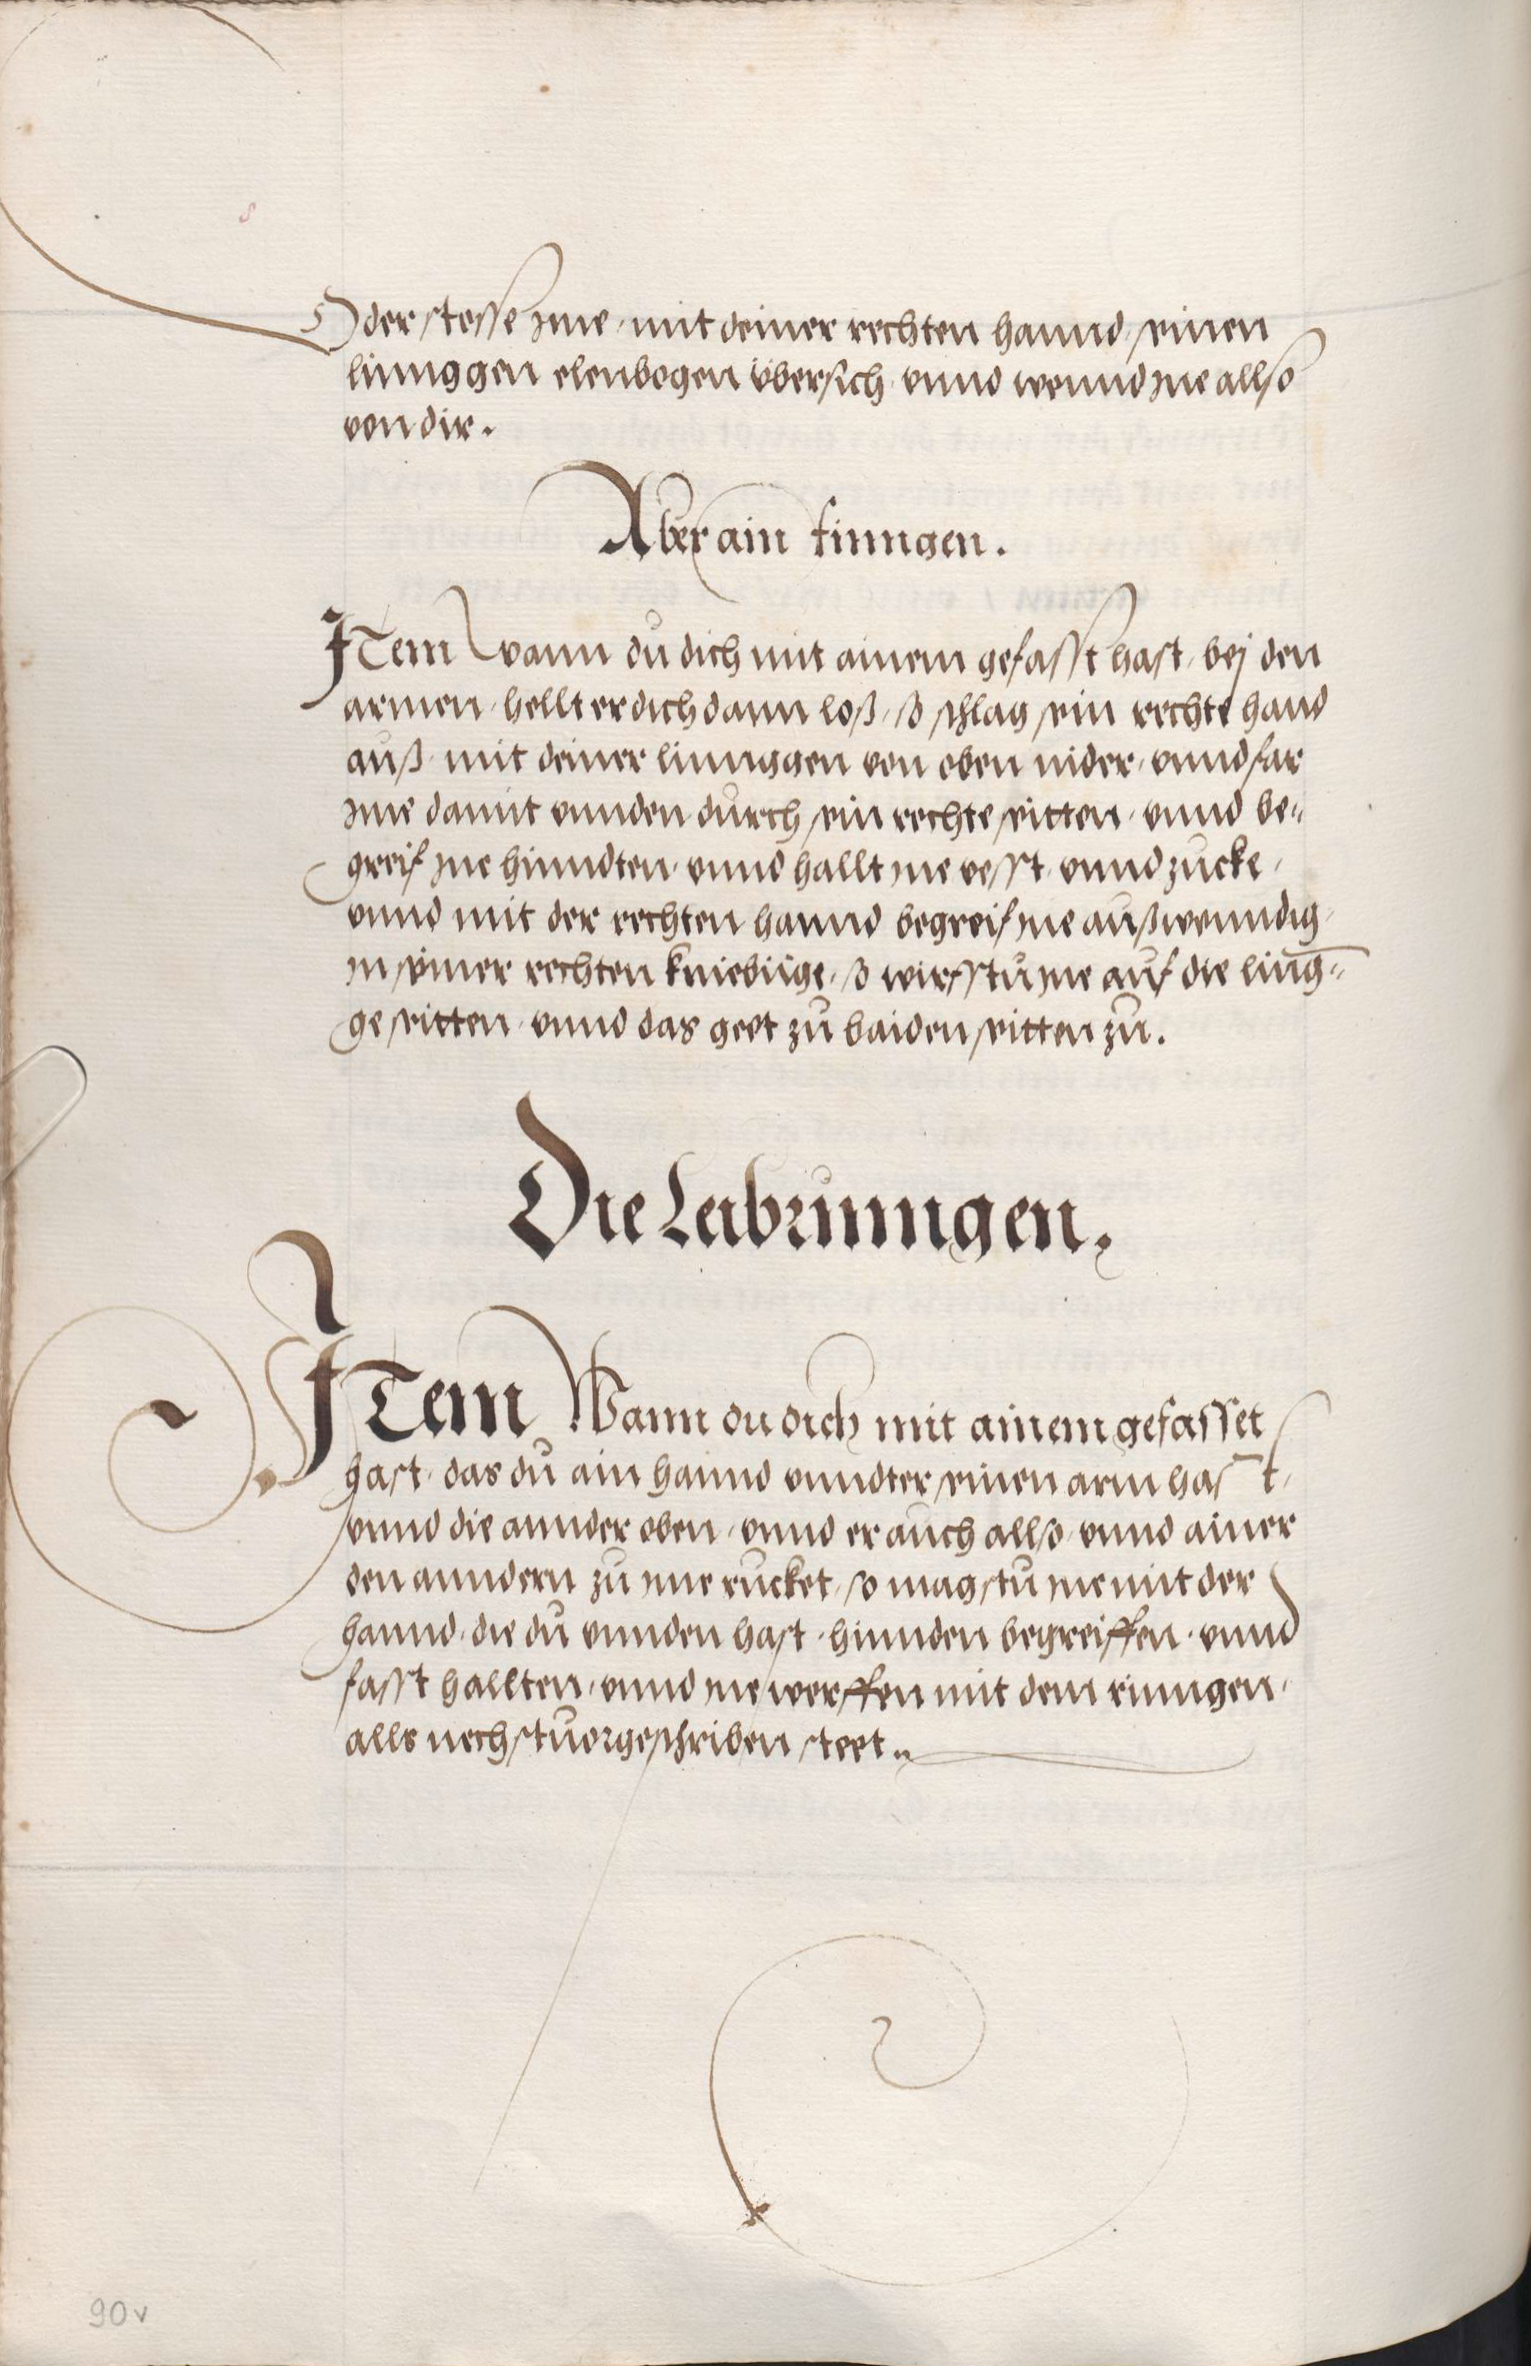 Oder stosse jme, mit deiner rechten hannd, seinen
linnggen elenbogen übersich, vnnd wennd jne allso
von dir.
Aber ain rinngen.
JTem wann du dich mit ainem gefasst hast, bej den
armen, hellt er dich dann loß, so schlag sein rechte hand
auß, mit deiner linnggen von oben nider, vnnd far
jme damit vnnden durch sein rechte seitten, vnnd be-
greif jne hinndten, vnnd hallt jne vesst, vnnd zucke,
vnnd mit der rechten hannd begreif jne außwenndig,
jn seiner rechten kniebüge, so wirfstu jne auf die ling-
ge seitten, vnnd das geet zu baiden seitten zu.
Die Leibrinngen.
JTem Wann du dich mit ainem gefasset
hast, das du ain hannd vnndter seinen arm hast,
vnnd die annder oben, vnnd er auch allso, vnnd ainer
den anndern zu jme rucket, so magstu jne mit der
hannd, die du vnnden hast, hinnden begreiffen, vnnd
fasst hallten, vnnd jne werffen mit dem rinngen,
alls nechst vorgeschriben steet.
90v